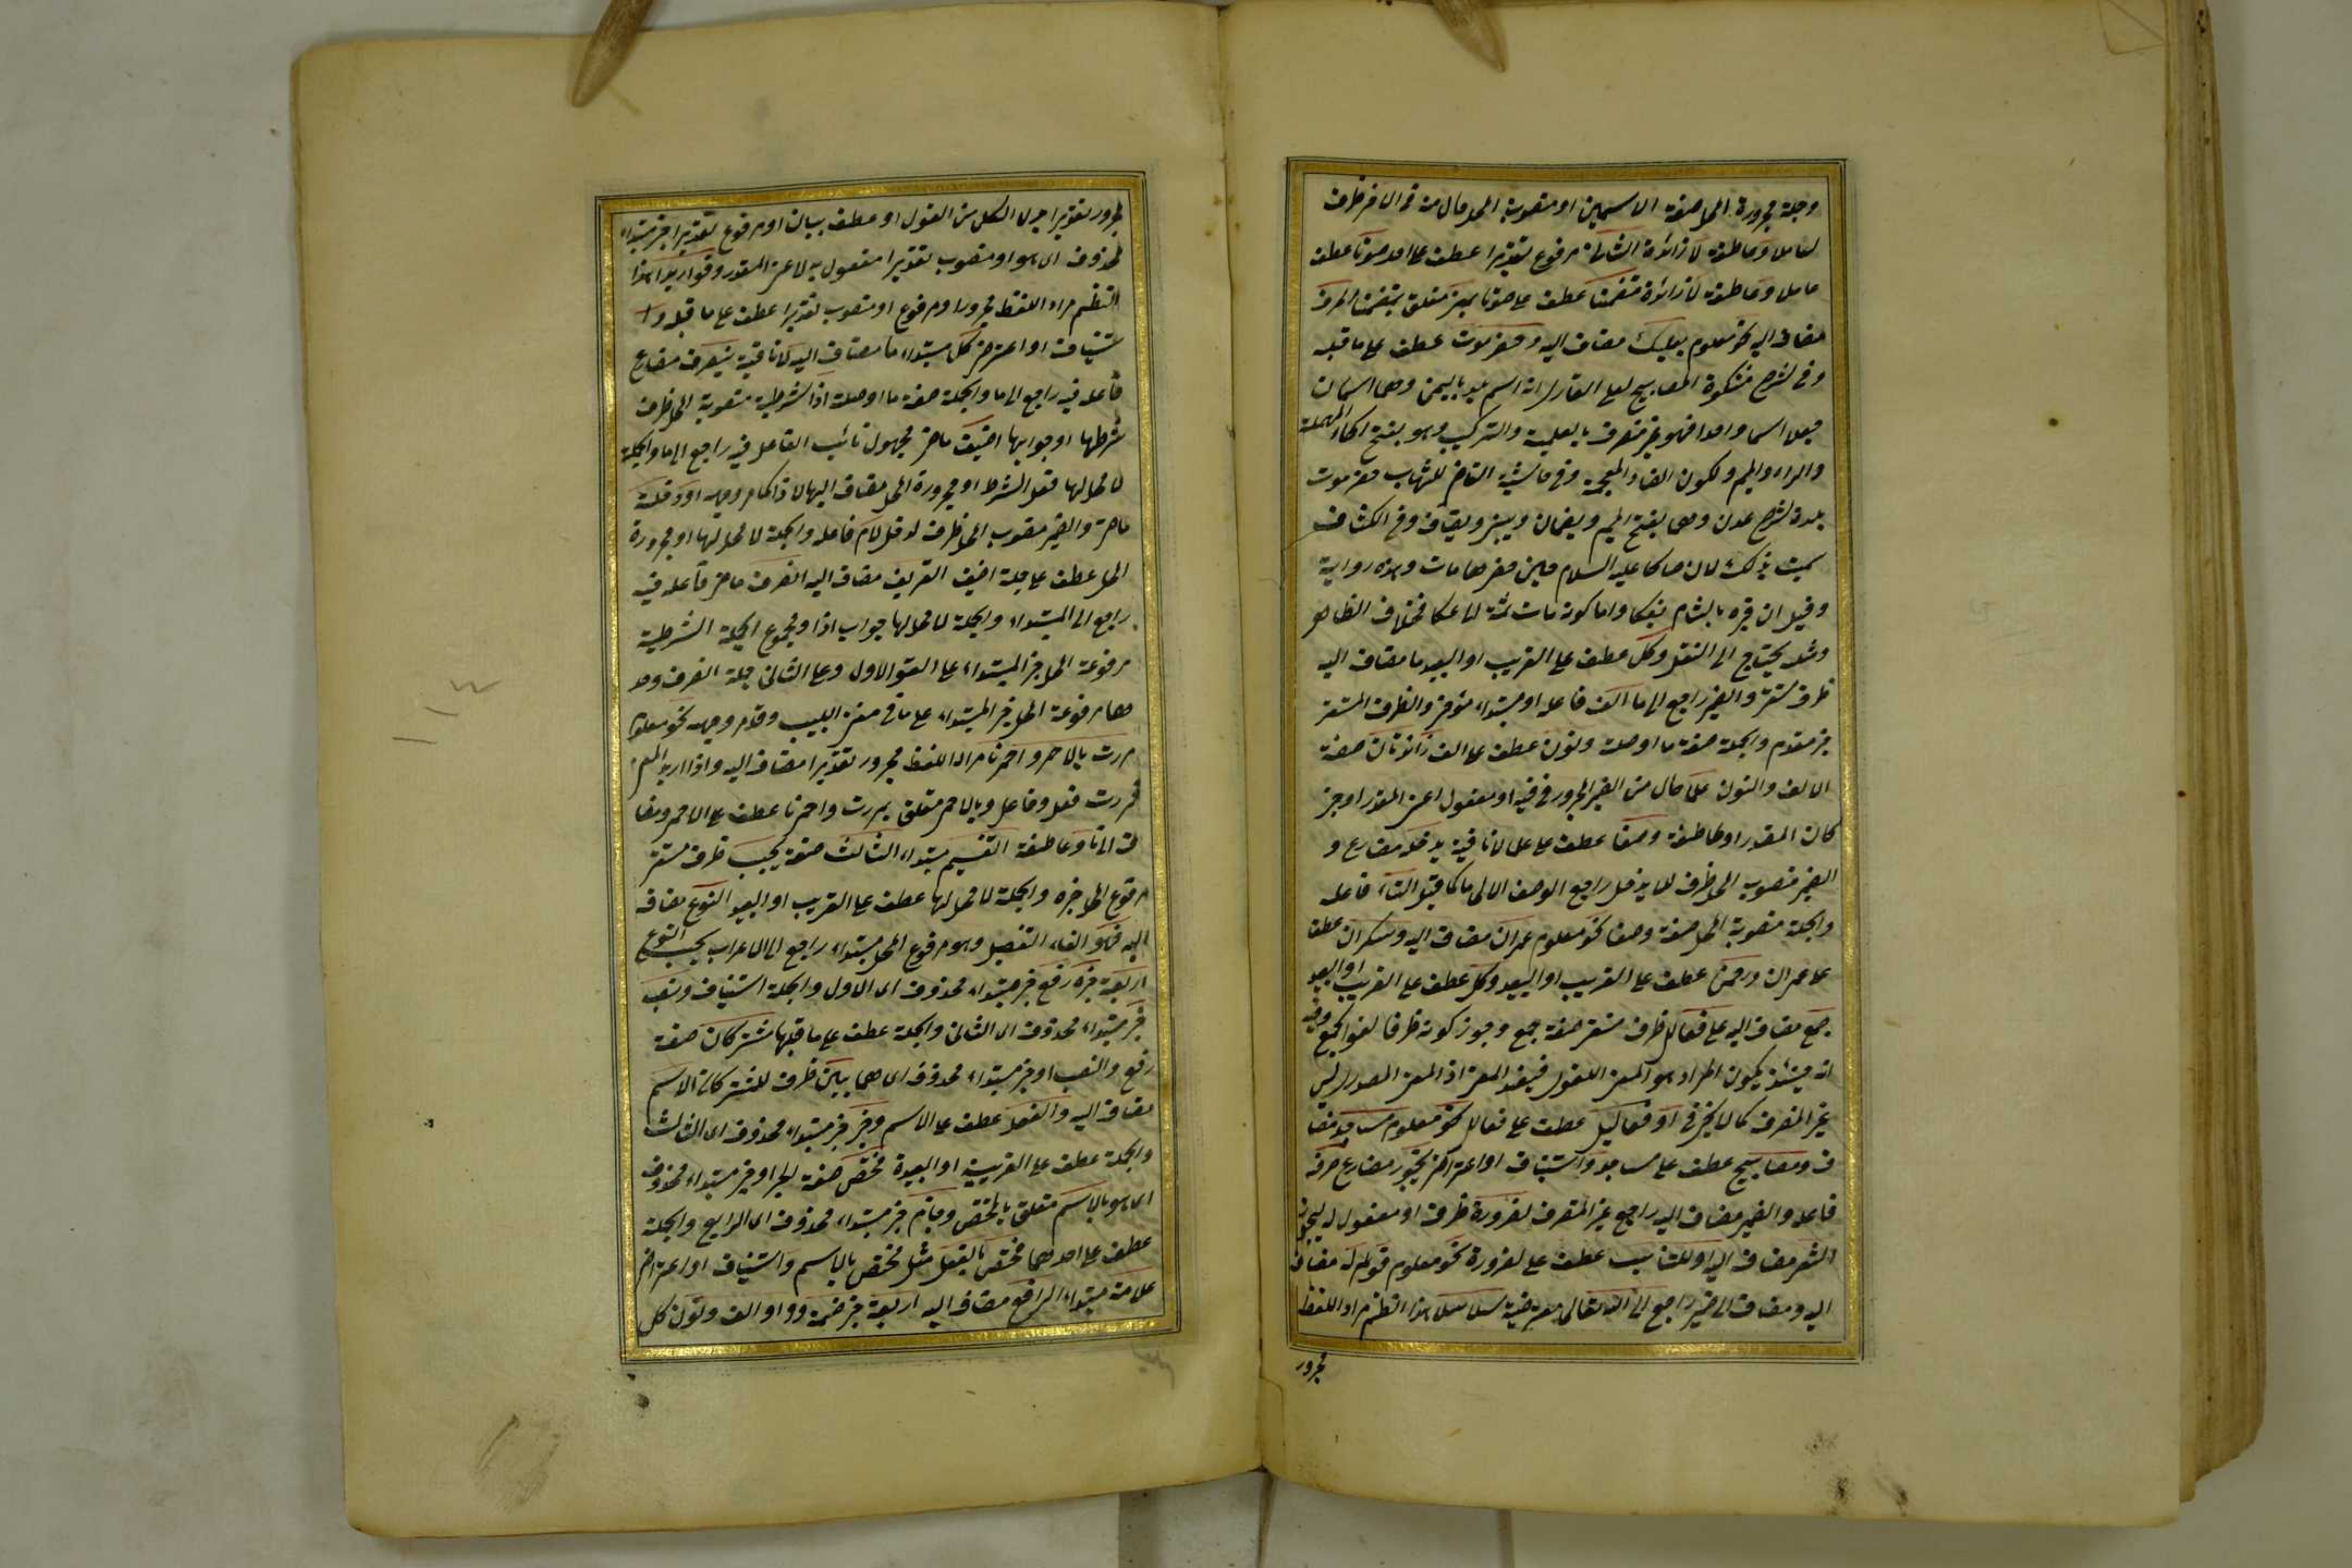 وجملة مجرورة المحل صفة الاسمين او منصوبة المحل حال منه في الآخر ظرف
لعامل وعاطفة لا زائدة الثاني مرفوع تقديرا عطف على احد صوتا عطف
عامل وعاطفة لا زائدة متضمنا عطف على صوتا بمتعلق بمتضمنا الحرف
مضاف اليه نحو معلوم بعلبك مضاف اليه وحضرموت عطف على ما قبله
وفي شرح مشكوة المصابيح لعلي القاري انه اسم بلد باليمن وهما اسمان
جعل اسما واحدا فهو غير منصرف بالعلمية والتركيب وهو بفتح الحاء المهملة
والراء والميم وسكون الضاد المعجمة وفي حاشية القاضي للشهاب حضرموت
بلدة شرقي عدن وهما بفتح الميم ويضمان ويبنى ويضاف وفي الكشاف
سميت بذلك لان صالحا عليه السلام حين حضرها مات وهذه رواية
وقيل ان قبره بالشام بعكا واما كونه مات ثمة
ومثله يحتاج الى النقل وكل عطف على القريب او البعيد ما مضاف اليه
ظرف مستقر والضمير راجع الى ما الف فاعله او مبتداء مؤخر والظرف المستقر
خبر مقدم والجملة صفة ما او صلة ونون عطف على الف زائدتان صفة
الالف والنون علما حال من الضمير المجرور في فيه او مفعول اعني المقدر او خبر
كان المقدر او عاطفة وصفا عطف على علما لا نافية يدخله مضارع و
الضمير منصوب المحل ظرف لما يدخل راجع الوصف التاء فاعله
والجملة منصوبة المحل صفة وصفا نحو معلوم عمران مضاف اليه وسكران عطف
على عمران ورحمن عطف على القريب او البعيد وكل عطف على القريب او البعيد
جمع مضاف اليه على فعالل ظرف مستقر صفة جمع وجوز كونه ظرفا لغوا لجمع وفيه
انه حينئذ يكون المراد هو المعنى اللغوي فيفسد المعنى اذ المعنى المصدري ليس
غير المنصرف كما لا يخفى او فعاليل عطف على فعالل نحو معلوم مساجد مضا
ف ومصابيح عطف على مساجد واستيناف او اعتراض يجوز مضارع صرفه
فاعله والضمير مضاف اليه راجع غير المنصرف لضرورة ظرف او مفعول له ليجوز
الشعر مضاف اليه او للتناسب عطف على لضرورة نحو معلوم قوله مضاف
اليه ومضاف الى ضمير راجع الى الله تعالى معترضة سلاسلا هذا النظم مراد اللفظ
مجرور
مجرور تقديرا بدل الكل من القول او عطف بيان او مرفوع تقديرا خبر مبتداء
محذوف اي هو او منصوب تقديرا مفعول به لاعني المقدر وقواريرا هذا
النظم مراد اللفظ مجرور او مرفوع او منصوب تقديرا عطف على ما قبله وا
ستيناف او اعتراض كل مبتداء ما مضاف اليه لا نافية ينصرف مضارع
فاعله فيه راجع الى ما والجملة صفة ما او صلة اذا شرطية منصوبة المحل ظرف
شرطها او جوابها اضيف ماض مجهول نائب الفاعل فيه راجع الى ما والجملة
لا محل لها فعل الشرط او مجرورة المحل مضاف اليها لاذا كما مر وجهه او دخله
ماض والضمير منصوب المحل ظرف لدخل لام فاعله والجملة لا محل لها او مجرورة
المحل عطف على جملة اضيف التعريف مضاف اليه انصرف ماض فاعله فيه
راجع الى المبتداء والجملة لا محل لها جواب اذا ومجموع الجملة الشرطية
مرفوعة المحل خبر المبتداء على القول الاول وعلى الثاني جملة انصرف وحد
ها مرفوعة المحل خبر المبتداء على ما في مغني اللبيب وقد مر وجهه نحو معلوم
مررت بالاحمر واحمرنا مراد اللفظ مجرور تقديرا مضاف اليه واذا اريد المعنى
فمررت فعل وفاعل وبالاحمر متعلق بمررت واحمرنا عطف على الاحمر ومضا
ف الى نا وعاطفة القسم مبتداء الثالث صفة بحسب ظرف مستقر
مرفوع المحل خبره والجملة لا محل لها عطف على القريب او البعيد النوع مضاف
اليه فهو الفاء للتفصيل وهو مرفوع المحل مبتداء راجع الى الاعراب بحسب النوع
اربعة خبره رفع خبر مبتداء محذوف اي الاول والجملة استيناف ونصب
خبر مبتداء محذوف اي الثاني والجملة عطف على ما قبلها مشتركان صفة
رفع والنصب او خبر مبتداء محذوف اي هما بين ظرف للمشتركان الاسم
مضاف اليه والفعل عطف على الاسم وجر خبر مبتداء محذوف اي الثالث
والجملة عطف على القريبة او البعيدة مختص صفة لجر او خبر مبتداء محذوف
اي هو بالاسم متعلق بالمختص وجزم خبر مبتداء محذوف اي الرابع والجملة
عطف على احدهما مختص بالفعل مثل مختص بالاسم واستيناف او اعتراض
علامة مبتداء الرفع مضاف اليه اربعة خبر ضمة وواو والف ونون كل